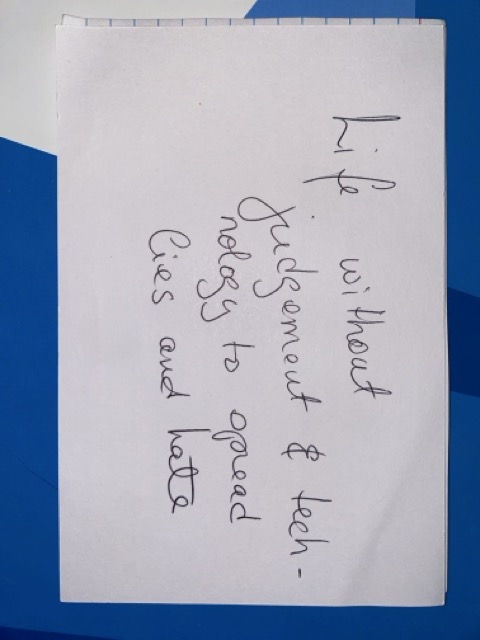 Life without
judgement & tech-
nology to spread
lies and hate